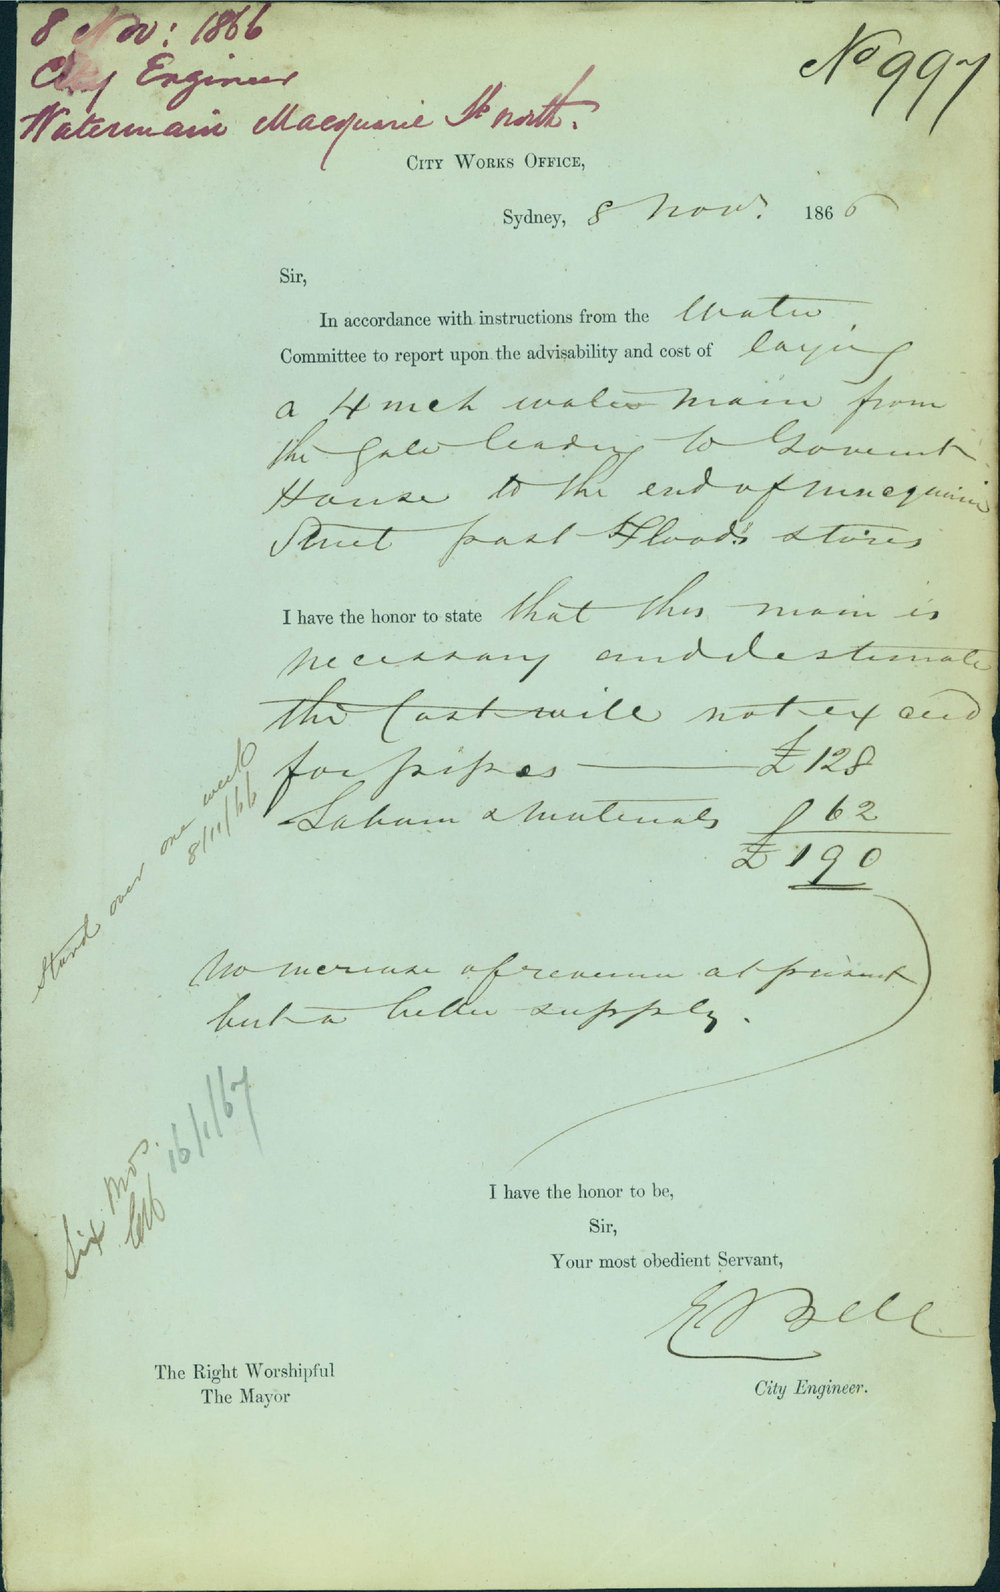 8 Nov: 1866
City Engineer
Watermain Macquarie St north.
No 997
City Works Office,
Sydney, 8 Nov. 1866
Sir,
In accordance with instructions from the Water
Committee to report upon the advisability and cost of laying
a 4 inch water main from
the gate leading to Governt
House to the end of Macquarie
Street past Flood's stores
I have the honor to state that this main is
necessary and I estimate
the Cost will not exceed
for pipes £128
Labour & Materials 62
£190
Stand over one week
8/11/66
No increase of revenue at present
but a better supply.
Six Mos.
16/1/67
I have the honor to be,
Sir,
Your most obedient Servant,
E Bell
The Right Worshipful
The Mayor
City Engineer.